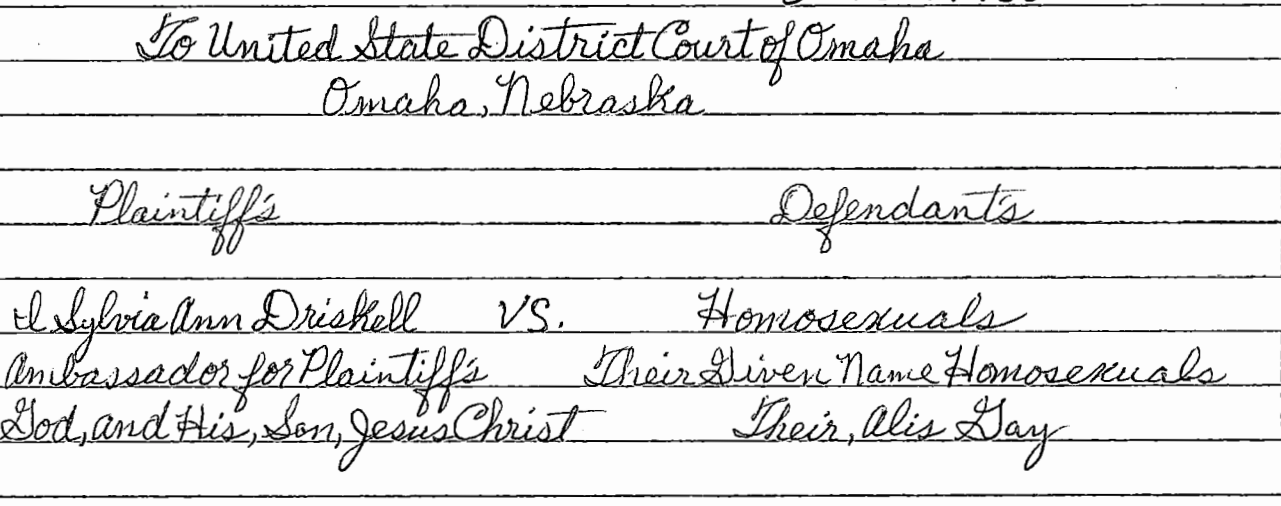 To United State District Court of Omaha
Omaha, Nebraska
Plaintiff's Defendant's
I Sylvia Ann Driskell VS. Homosexuals
Ambassador for Plaintiff's Their Given Name Homosexuals
God, and His, Son, Jesus Christ Their, Alis Gay